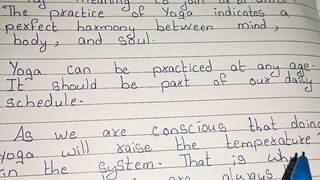 meaning to join or to unite.
The practice of Yoga indicates a
perfect harmony between mind,
body, and soul.
Yoga can be practiced at any age.
It should be part of our daily
schedule.
As we are conscious that doing
yoga will raise the temperature
in the system. That is
are always